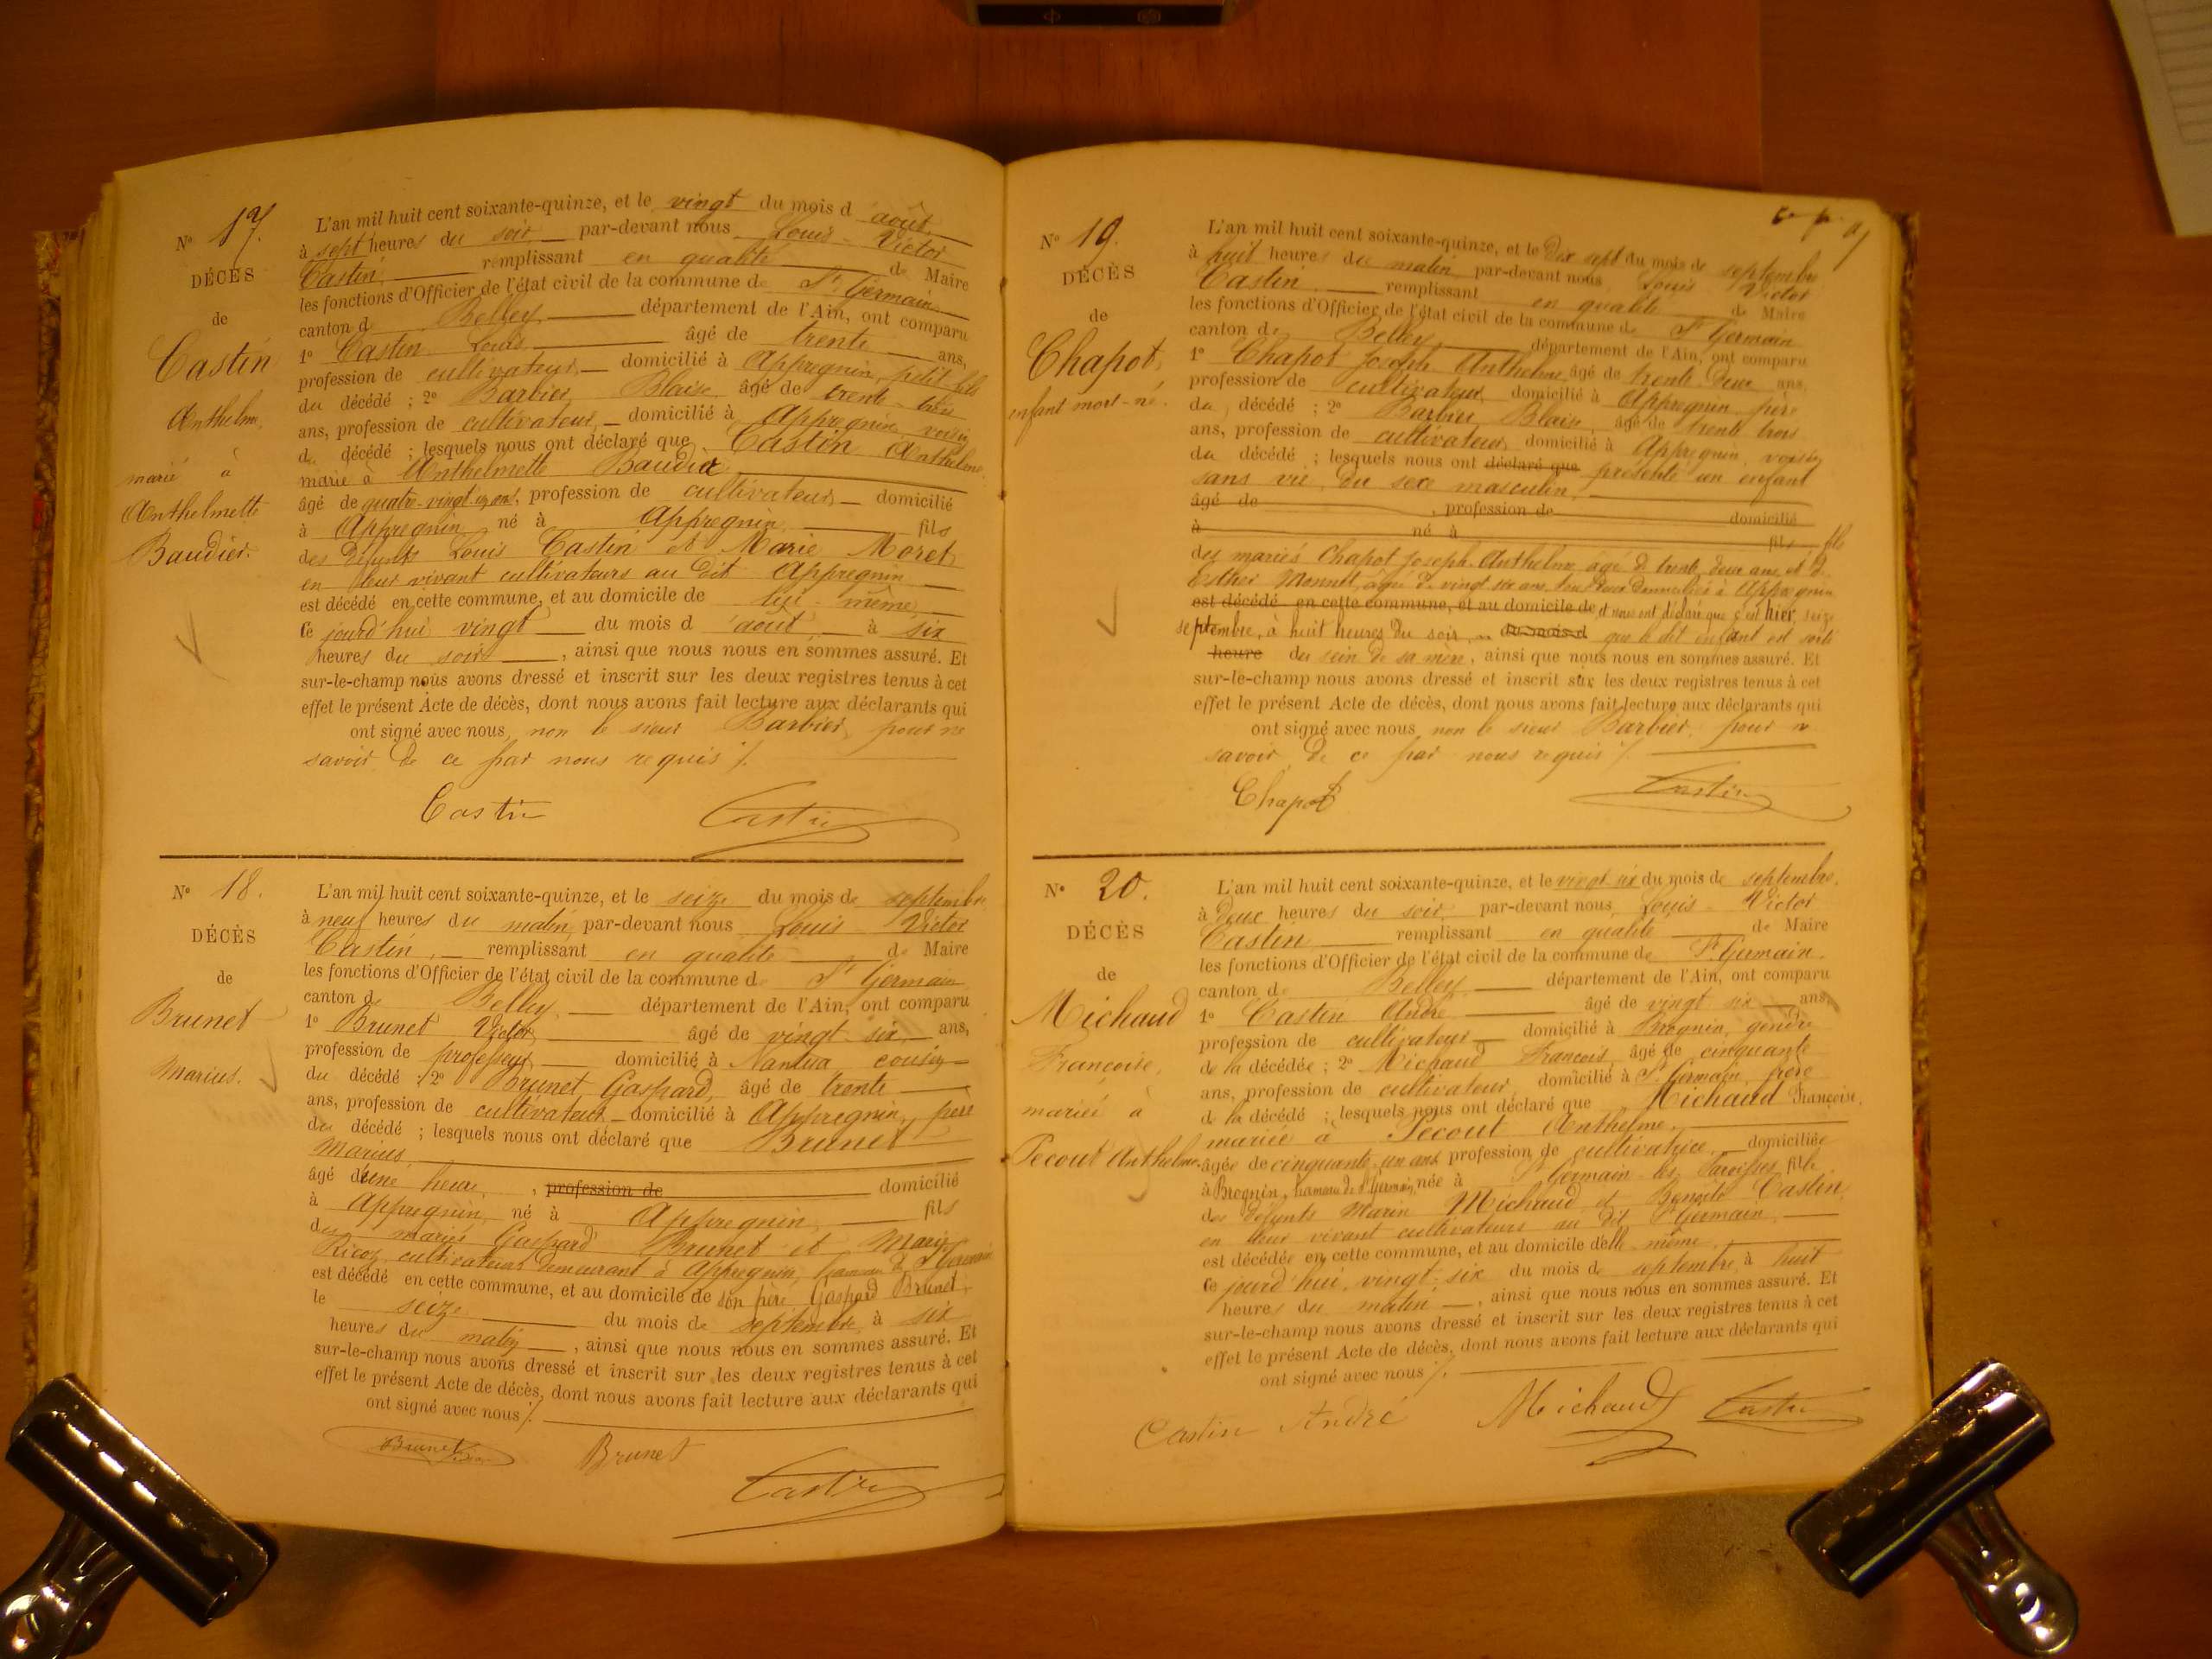 N° 17.
DÉCÈS
de
Castin
Anthelme,
marié à
Anthelmette
Baudier.
L'an mil huit cent soixante-quinze, et le vingt du mois d'août
à sept heures du soir par-devant nous Louis-Victor
Castin, remplissant en qualité de Maire
les fonctions d'Officier de l'état civil de la commune de St Germain
canton de Belley département de l'Ain, ont comparu
1° Castin Louis âgé de trente ans,
profession de cultivateur, domicilié à Appregnin, petit-fils
du décédé ; 2° Barbier Blaise, âgé de trente-trois
ans, profession de cultivateur, domicilié à Appregnin voisin
du décédé ; lesquels nous ont déclaré que Castin Anthelme
marié à Anthelmette Baudier
âgé de quatre-vingt-un ans, profession de cultivateur domicilié
à Appregnin né à Appregnin fils
des défunts Louis Castin et Marie Moret
en leur vivant cultivateurs au dit Appregnin
est décédé en cette commune, et au domicile de lui-même
ce jourd'hui vingt du mois d'août à six
heures du soir, ainsi que nous nous en sommes assuré. Et
sur-le-champ nous avons dressé et inscrit sur les deux registres tenus à cet
effet le présent Acte de décès, dont nous avons fait lecture aux déclarants qui
ont signé avec nous, non le sieur Barbier, pour ne
savoir de ce par nous requis ./.
Castin Castin
N° 18.
DÉCÈS
de
Brunet
Marius.
L'an mil huit cent soixante-quinze, et le seize du mois de septembre
à neuf heures du matin par-devant nous Louis-Victor
Castin, remplissant en qualité de Maire
les fonctions d'Officier de l'état civil de la commune de St Germain
canton de Belley, département de l'Ain, ont comparu
1° Brunet Victor âgé de vingt-six ans,
profession de professeur domicilié à Nantua cousin
du décédé ; 2° Brunet Gaspard, âgé de trente
ans, profession de cultivateur domicilié à Appregnin, père
du décédé ; lesquels nous ont déclaré que Brunet
Marius
âgé d'une heure, profession de domicilié
à Appregnin, né à Appregnin, fils
des mariés Gaspard Brunet et Marie
Ricoz cultivateurs demeurant à Appregnin, hameau de St Germain
est décédé en cette commune, et au domicile de son père Gaspard Brunet,
le seize du mois de septembre à six
heures du matin, ainsi que nous nous en sommes assuré. Et
sur-le-champ nous avons dressé et inscrit sur les deux registres tenus à cet
effet le présent Acte de décès, dont nous avons fait lecture aux déclarants qui
ont signé avec nous ./.
Brunet Brunet
Castin
N° 19.
DÉCÈS
de
Chapot,
enfant mort-né.
L'an mil huit cent soixante-quinze, et le dix sept du mois de septembre
à huit heures du matin par-devant nous Louis Victor
Castin remplissant en qualité de Maire
les fonctions d'Officier de l'état civil de la commune de St Germain
canton de Belley, département de l'Ain, ont comparu
1° Chapot Joseph Anthelme, âgé de trente-deux ans,
profession de cultivateur domicilié à Appregnin père
du décédé ; 2° Barbier Blaise, âgé de trente trois
ans, profession de cultivateur, domicilié à Appregnin voisin
du décédé ; lesquels nous ont déclaré que présenté un enfant
sans vie, du sexe masculin,
âgé de , profession de domicilié
à né à fils fils
des mariés Chapot Joseph-Anthelme, âgé de trente deux ans, et d'
Esther Monnet, âgée de vingt six ans, tous deux domiciliés à Appregnin
est décédé en cette commune, et au domicile de et nous ont déclaré que c'est hier, seize
septembre, à huit heures du soir, du mois d que le dit enfant est sorti
heure du sein de sa mère, ainsi que nous nous en sommes assuré. Et
sur-le-champ nous avons dressé et inscrit sur les deux registres tenus à cet
effet le présent Acte de décès, dont nous avons fait lecture aux déclarants qui
ont signé avec nous non le sieur Barbier, pour ne
savoir de ce par nous requis ./.
Chapot Castin
N° 20.
DÉCÈS
de
Michaud
Françoise,
mariée à
Pecout Anthelme.
L'an mil huit cent soixante-quinze, et le vingt six du mois de septembre,
à deux heures du soir par-devant nous, Louis-Victor
Castin remplissant en qualité de Maire
les fonctions d'Officier de l'état civil de la commune de St Germain.
canton de Belley département de l'Ain, ont comparu
1° Castin André âgé de vingt six ans,
profession de cultivateur domicilié à Bregnin, gendre
de la décédée ; 2° Michaud François, âgé de cinquante
ans, profession de cultivateur, domicilié à St Germain, frère
de la décédé ; lesquels nous ont déclaré que Michaud Françoise,
mariée à Pecout Anthelme,
âgée de cinquante-un ans profession de cultivatrice domiciliée
à Bregnin, hameau de St Germain, née à St Germain-les-Paroisses, fille
des défunts Marin Michaud et Benoîte Castin
en leur vivant cultivateurs au dit St Germain,
est décédée en cette commune, et au domicile d'elle-même
ce jourd'hui, vingt-six du mois de septembre, à huit
heures du matin, ainsi que nous nous en sommes assuré. Et
sur-le-champ nous avons dressé et inscrit sur les deux registres tenus à cet
effet le présent Acte de décès, dont nous avons fait lecture aux déclarants qui
ont signé avec nous ./.
Castin André Michaud Castin